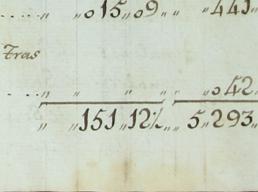 .... „ „ 015 „ 09 „ „ „ 441 „
Tras
... „ „ „ „ „ 042 „
„ „ 151 „ 12½ „ „ 5 „ 293 „